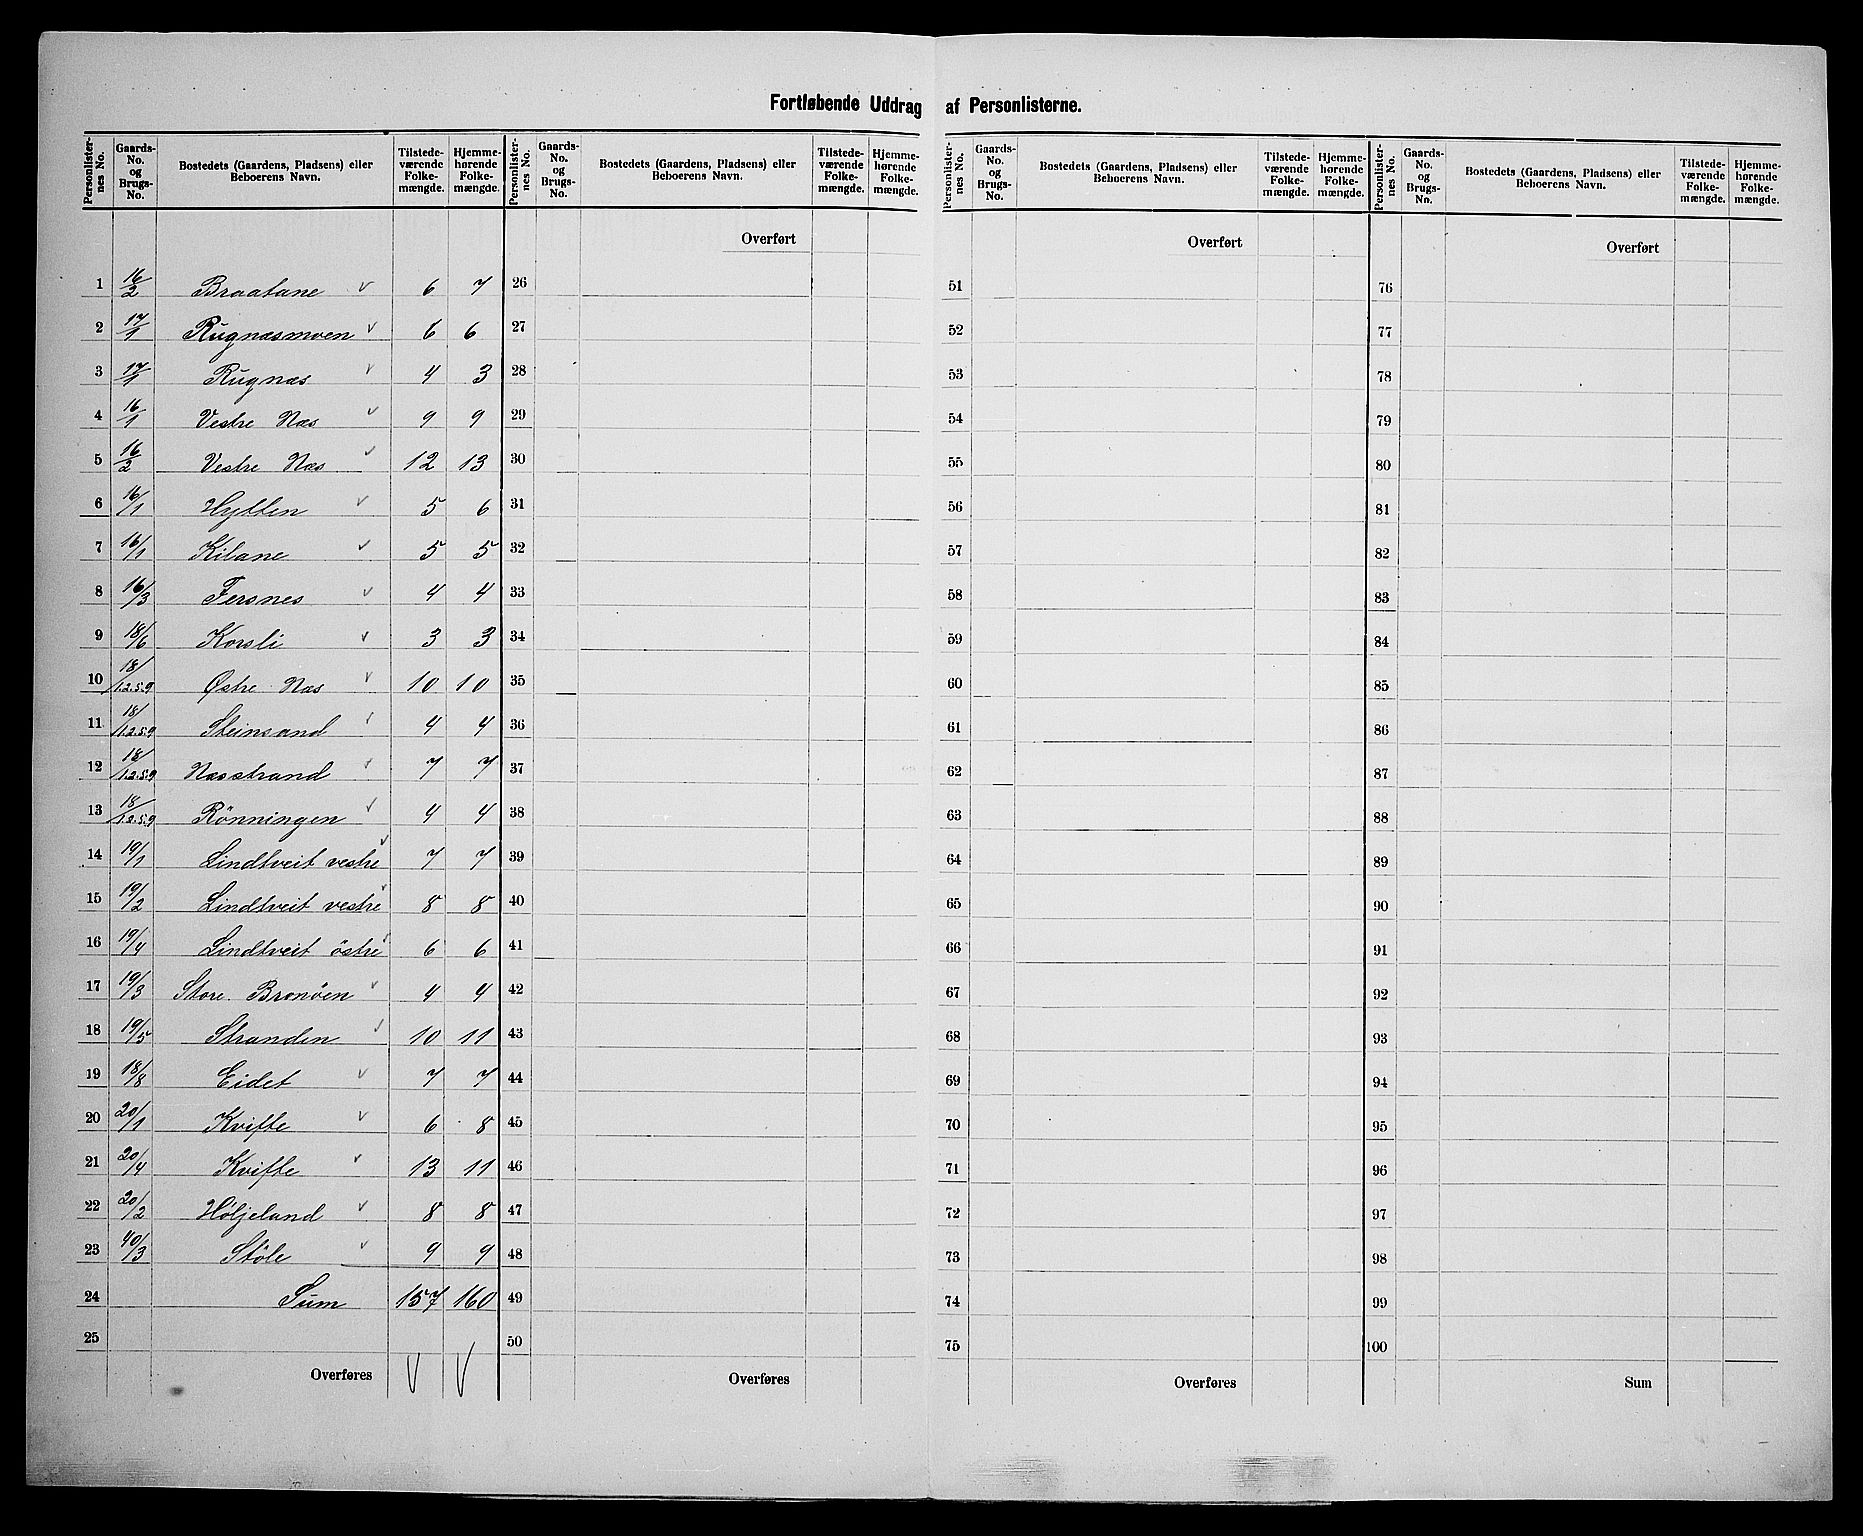 Fortløbende Uddrag af Personlisterne.
Personlisternes No. | Gaards-No. og Brugs-No. | Bostedets (Gaardens, Pladsens) eller Beboerens Navn. | Tilstedeværende Folkemængde. | Hjemmehørende Folkemængde.
1 16/2 Braatane v 6 7
2 17/1 Rugnæsmoen v 6 6
3 17/1 Rugnæs v 4 3
4 16/1 Vestre Næs v 9 9
5 16/2 Vestre Næs v 12 13
6 16/1 Hytten v 5 6
7 16/1 Kilane v 5 5
8 16/3 Fersnes v 4 4
9 18/6 Korsli v 3 3
10 18/1.2.5.9 Østre Næs v 10 10
11 18/1.2.5.9 Steinsand v 4 4
12 18/1.2.5.9 Næsstrand v 7 7
13 18/1.2.5.9 Rönningen v 4 4
14 19/1 Lindtveit vestre v 7 7
15 19/2 Lindtveit vestre v 8 8
16 19/4 Lindtveit östre v 6 6
17 19/3 Store Bronöen v 4 4
18 19/5 Stranden v 10 11
19 18/8 Eidet v 7 7
20 20/1 Kvifte v 6 8
21 20/4 Kvifte v 13 11
22 20/2 Höljeland v 8 8
23 40/3 Stöle v 9 9
24 Sum 157 160
25
Overføres V V
Personlisternes No. | Gaards-No. og Brugs-No. | Bostedets (Gaardens, Pladsens) eller Beboerens Navn. | Tilstedeværende Folkemængde. | Hjemmehørende Folkemængde.
Overført
26
27
28
29
30
31
32
33
34
35
36
37
38
39
40
41
42
43
44
45
46
47
48
49
50
Overføres
Personlisternes No. | Gaards-No. og Brugs-No. | Bostedets (Gaardens, Pladsens) eller Beboerens Navn. | Tilstedeværende Folkemængde. | Hjemmehørende Folkemængde.
Overført
51
52
53
54
55
56
57
58
59
60
61
62
63
64
65
66
67
68
69
70
71
72
73
74
75
Overføres
Personlisternes No. | Gaards-No. og Brugs-No. | Bostedets (Gaardens, Pladsens) eller Beboerens Navn. | Tilstedeværende Folkemængde. | Hjemmehørende Folkemængde.
Overført
76
77
78
79
80
81
82
83
84
85
86
87
88
89
90
91
92
93
94
95
96
97
98
99
100
Sum